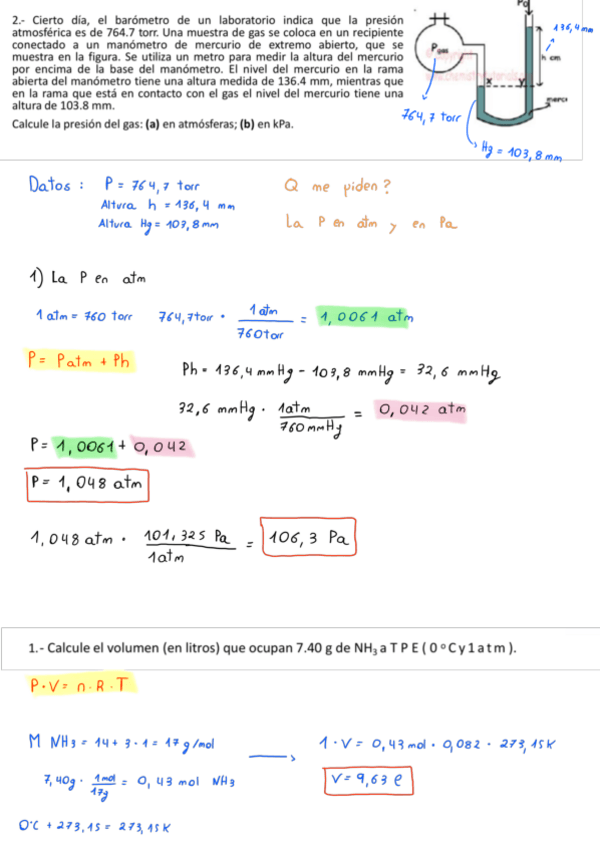 2.- Cierto día, el barómetro de un laboratorio indica que la presión
atmosférica es de 764.7 torr. Una muestra de gas se coloca en un recipiente
conectado a un manómetro de mercurio de extremo abierto, que se
muestra en la figura. Se utiliza un metro para medir la altura del mercurio
por encima de la base del manómetro. El nivel del mercurio en la rama
abierta del manómetro tiene una altura medida de 136.4 mm, mientras que
en la rama que está en contacto con el gas el nivel del mercurio tiene una
altura de 103.8 mm.
Calcule la presión del gas: (a) en atmósferas; (b) en kPa.
Po
136,4 mm
P gas
h cm
x
y
merc
764,7 torr
Hg = 103,8 mm
Datos : P = 764,7 torr
Altura h = 136,4 mm
Altura Hg = 103,8 mm
Q me piden?
La P en atm y en Pa
1) La P en atm
1 atm = 760 torr 764,7 torr · 1 atm / 760 torr = 1,0061 atm
P = Patm + Ph
Ph = 136,4 mmHg - 103,8 mmHg = 32,6 mmHg
32,6 mmHg · 1 atm / 760 mmHg = 0,042 atm
P = 1,0061 + 0,042
P = 1,048 atm
1,048 atm · 101,325 Pa / 1 atm = 106,3 Pa
1.- Calcule el volumen (en litros) que ocupan 7.40 g de NH₃ a T P E ( 0 ºC y 1 a t m ).
P·V = n·R·T
M NH₃ = 14 + 3 · 1 = 17 g/mol
7,40g · 1 mol / 17g = 0,43 mol NH₃
0ºC + 273,15 = 273,15 K
1 · V = 0,43 mol · 0,082 · 273,15 K
V = 9,63 ℓ